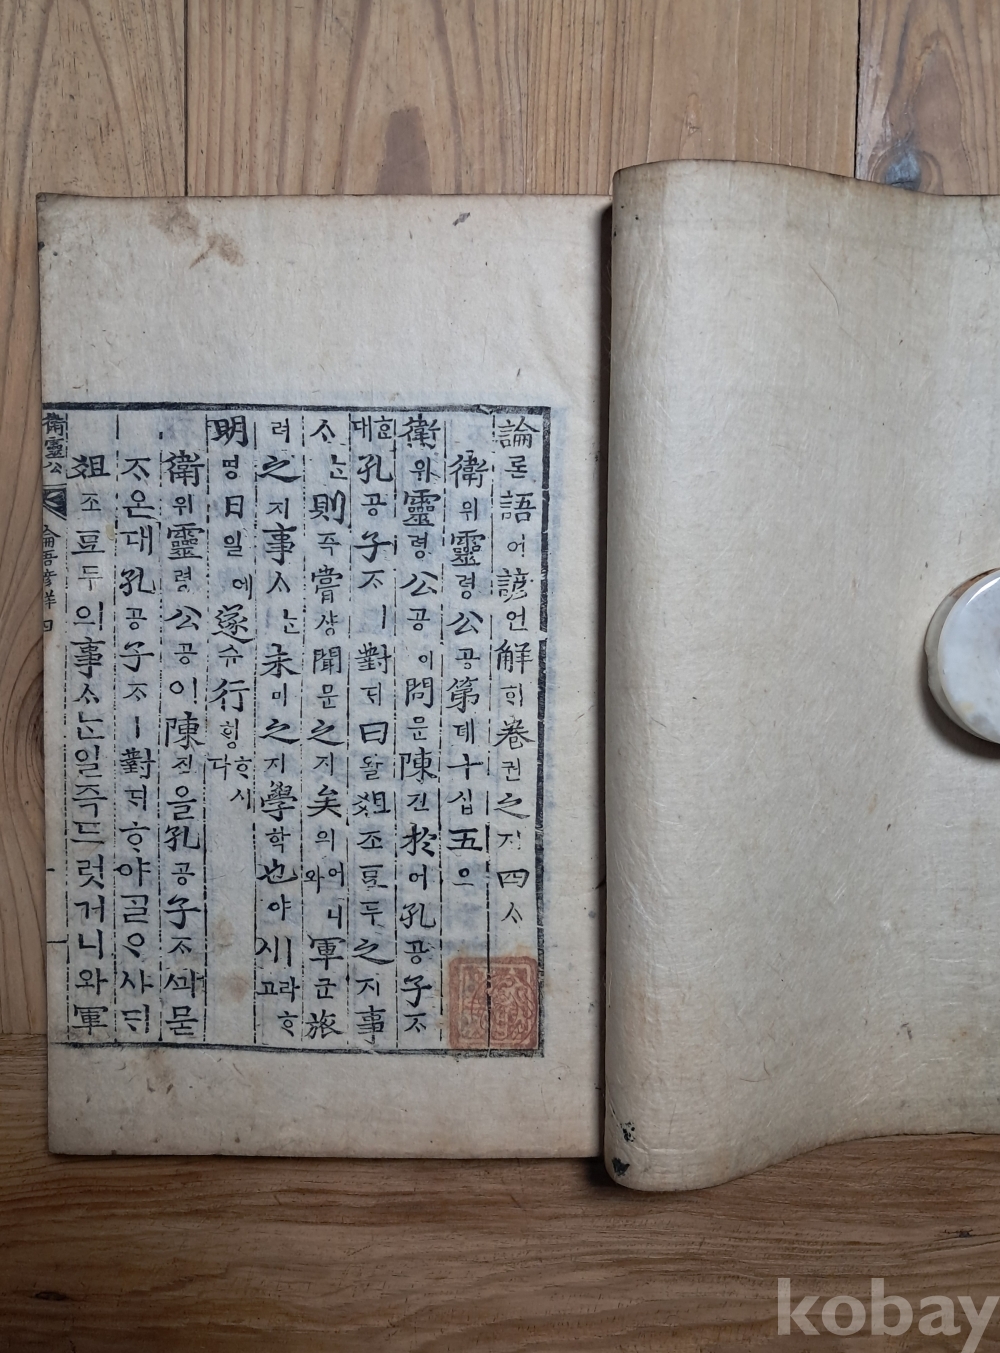 論론語어諺언解ᄒᆡ卷권之지四ᄉᆞ
衛위靈령公공第뎨十십五오
衛위靈령公공이問문陳딘於어孔공子ᄌᆞ
ᄒᆞᆫ대孔공子ᄌᆞㅣ對ᄃᆡ曰왈俎조豆두之지事
ᄉᆞᄂᆞᆫ則즉嘗샹聞문之지矣의어니와軍군旅
려之지事ᄉᆞᄂᆞᆫ未미之지學학也야ㅣ라ᄒᆞ시고
明명日일에遂슈行ᄒᆡᆼᄒᆞ시다
衛위靈령公공이陳진을孔공子ᄌᆞᄭᅴ묻
ᄌᆞ온대孔공子ᄌᆞㅣ對ᄃᆡᄒᆞ야ᄀᆞᆯᄋᆞ샤ᄃᆡ
俎조豆두의事ᄉᆞᄂᆞᆫ일즉드럿거니와軍
衛靈公 論語諺解四
kobay